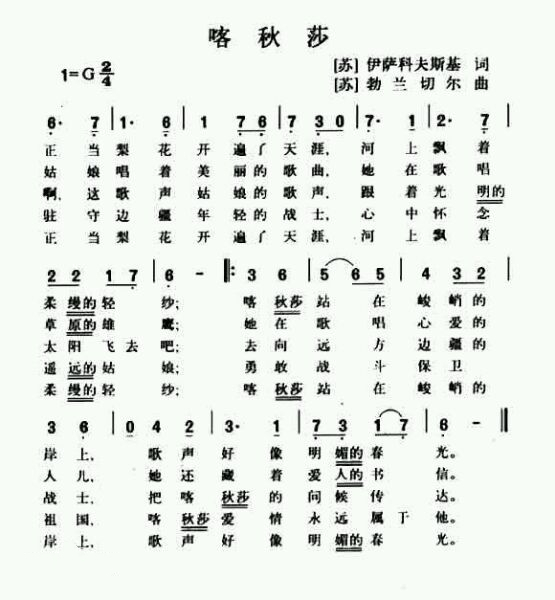 喀秋莎
[苏] 伊萨科夫斯基 词
1=G 2/4
[苏] 勃兰切尔 曲
6· 7 | 1· 6 | 1 7 6 | 7 3 0 | 7· 1 | 2· 7 |
正当梨花开遍了天涯, 河上飘着
姑娘唱着美丽的歌曲, 她在歌唱
啊, 这歌声姑娘的歌声, 跟着光明的
驻守边疆年轻的战士, 心中怀念
正当梨花开遍了天涯, 河上飘着
2 2 1 7 | 6 - |: 3 6 | 5 6 5 | 4 3 2 |
柔缦的轻纱; 喀秋莎站在峻峭的
草原的雄鹰; 她在歌唱心爱的
太阳飞去吧; 去向远方边疆的
遥远的姑娘; 勇敢战斗保卫
柔缦的轻纱; 喀秋莎站在峻峭的
3 6 | 0 4 2 | 3· 1 | 7 3 1 7 | 6 - :||
岸上, 歌声好像明媚的春光。
人儿, 她还藏着爱人的书信。
战士, 把喀秋莎的问候传达。
祖国, 喀秋莎爱情永远属于他。
岸上, 歌声好像明媚的春光。